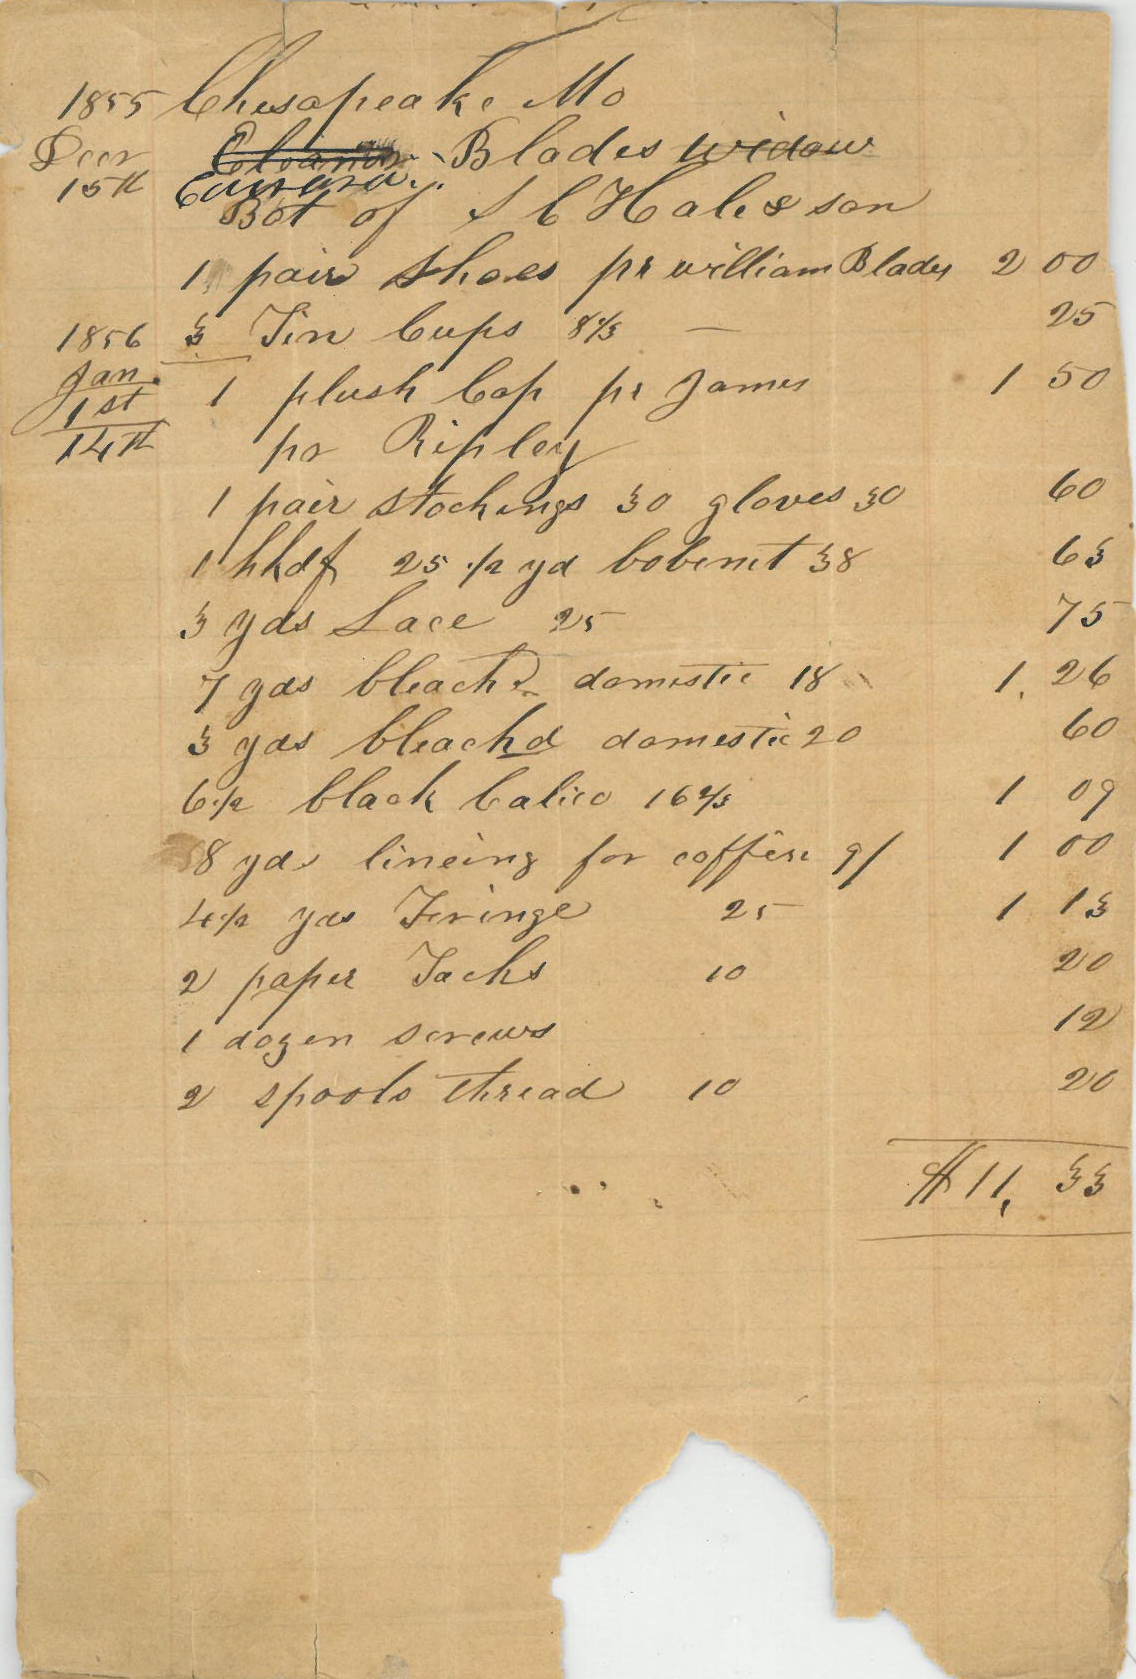 1855 Chesapeake Mo
Decr Elianor Blades widow
15th Edward
Bot of S C Hale & son
1 pair shoes pr william Blades 2 00
1856 3 Tin Cups 8⅓ — 25
Jan. 1st 1 plush Cap pr James 1 50
14th pr Ripley
1 pair stockings 30 gloves 30 60
1 hkdf 25 1/2 yd bobinet 38 63
3 yds Lace 25 75
7 yds bleachd domestic 18 1.26
3 yds bleachd domestic 20 60
6 1/2 black Calico 16 2/3 1 09
8 yds lineing for coffin 1 00
4 1/2 yds Fringe 25 1 13
2 paper Tacks 10 20
1 dozen screws 12
2 spools thread 10 20
$11,33